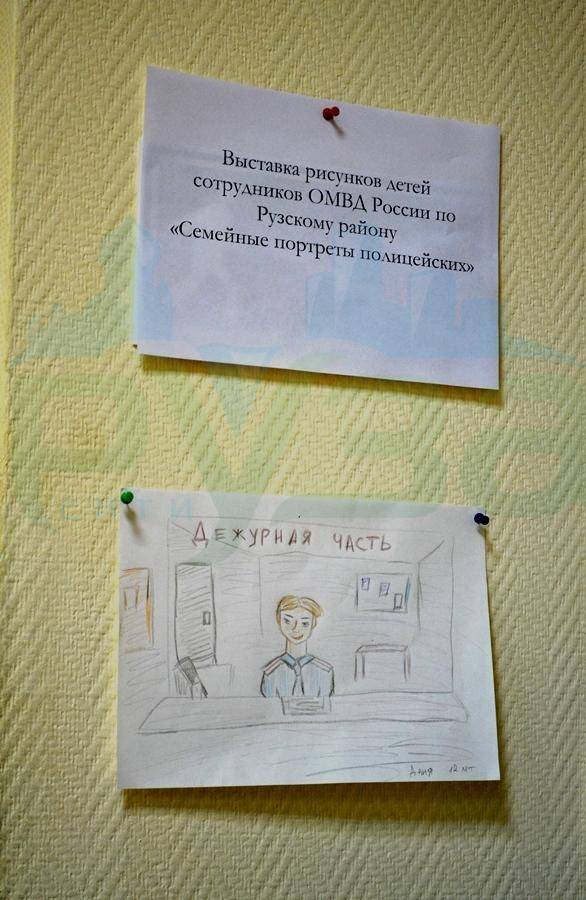 Выставка рисунков детей
сотрудников ОМВД России по
Рузскому району
«Семейные портреты полицейских»
Дежурная часть
12